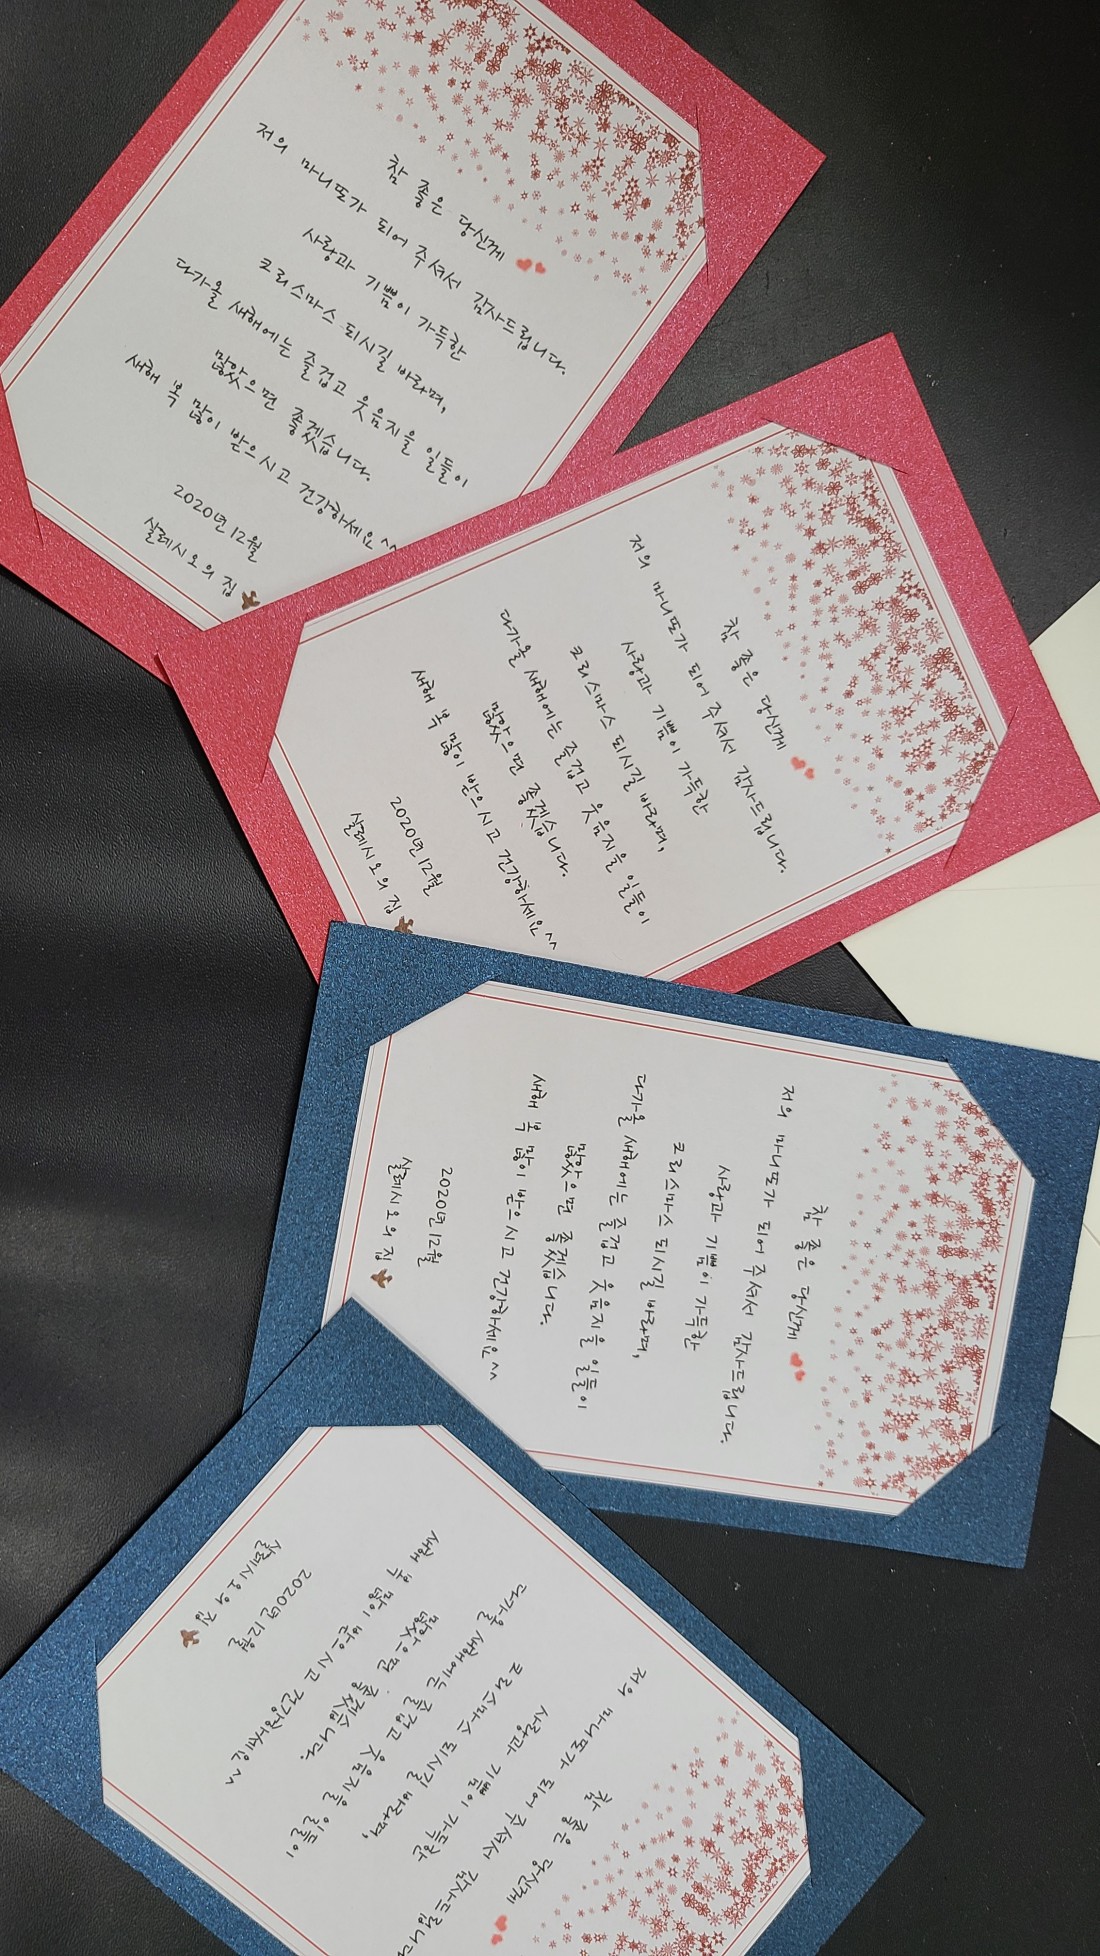 참 좋은 당신께
저의 마니또가 되어 주셔서 감사드립니다.
사랑과 기쁨이 가득한
크리스마스 되시길 바라며,
다가올 새해에는 즐겁고 웃음지을 일들이
많았으면 좋겠습니다.
새해 복 많이 받으시고 건강하세요^^
2020년 12월
살레시오의 집
참 좋은 당신께
저의 마니또가 되어 주셔서 감사드립니다.
사랑과 기쁨이 가득한
크리스마스 되시길 바라며,
다가올 새해에는 즐겁고 웃음지을 일들이
많았으면 좋겠습니다.
새해 복 많이 받으시고 건강하세요^^
2020년 12월
살레시오의 집
참 좋은 당신께
저의 마니또가 되어 주셔서 감사드립니다.
사랑과 기쁨이 가득한
크리스마스 되시길 바라며,
다가올 새해에는 즐겁고 웃음지을 일들이
많았으면 좋겠습니다.
새해 복 많이 받으시고 건강하세요^^
2020년 12월
살레시오의 집
참 좋은 당신께
저의 마니또가 되어 주셔서 감사드립니다
사랑과 기쁨이 가득한
크리스마스 되시길 바라며,
다가올 새해에는 즐겁고 웃음지을 일들이
많았으면 좋겠습니다.
새해 복 많이 받으시고 건강하세요^^
2020년 12월
살레시오의 집